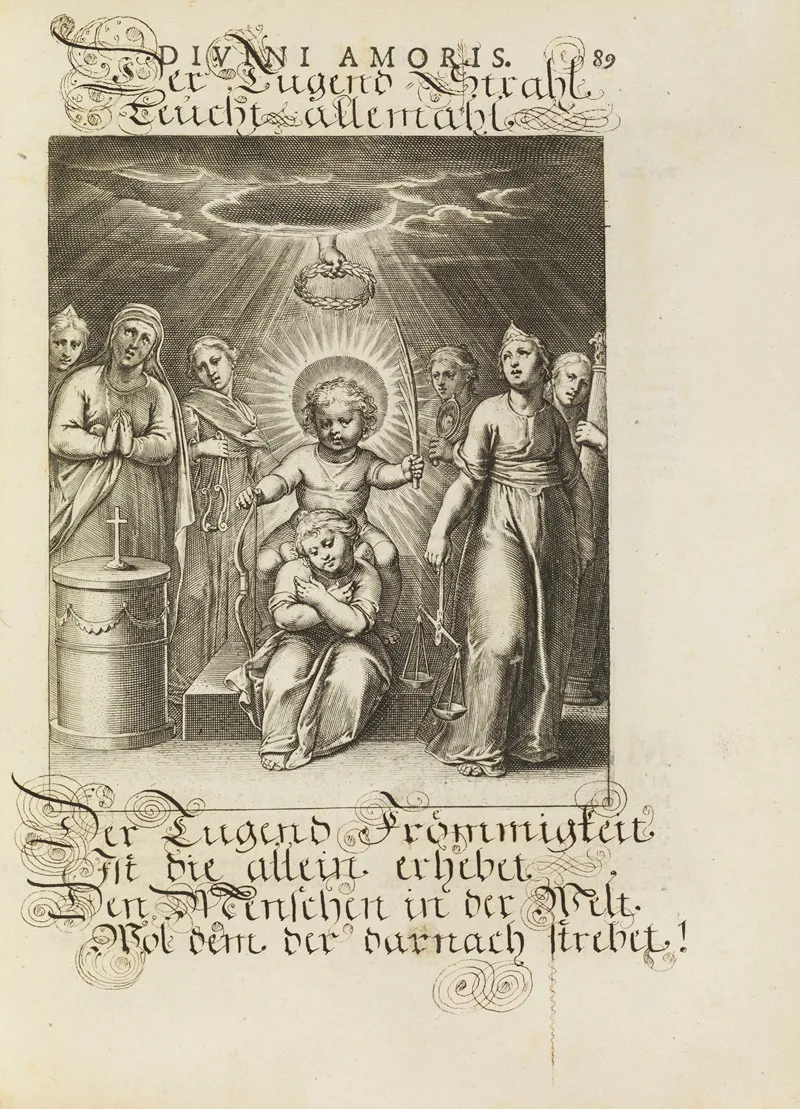 DIVINI AMORIS. 89
Der Tugend Strahl
Leucht allemahl.
Der Tugend Frömmigkeit
Ist die allein erhebet
Den Menschen in der Welt.
Wol dem der darnach strebet!